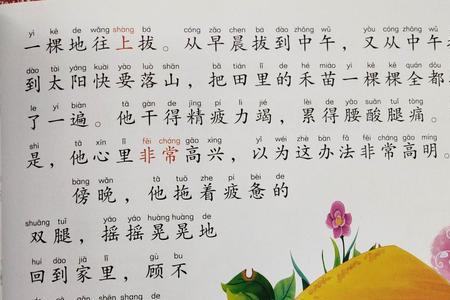 yì kē de wǎng shàng bá cóng zǎo chén bá dào zhōng wǔ yòu cóng zhōng wǔ
一棵地往上拔。从早晨拔到中午，又从中午
dào tài yáng kuài yào luò shān bǎ tián lǐ de hé miáo yì kē kē quán dōu
到太阳快要落山，把田里的禾苗一棵棵全都
le yí biàn tā gàn de jīng pí lì jié lèi de yāo suān tuǐ tòng
了一遍。他干得精疲力竭，累得腰酸腿痛。
shì tā xīn lǐ fēi cháng gāo xìng yǐ wéi zhè bàn fǎ fēi cháng gāo míng
是，他心里非常高兴，以为这办法非常高明。
bàng wǎn tā tuō zhe pí bèi de
傍晚，他拖着疲惫的
shuāng tuǐ yáo yáo huàng huàng de
双腿，摇摇晃晃地
huí dào jiā lǐ gù bù
回到家里，顾不